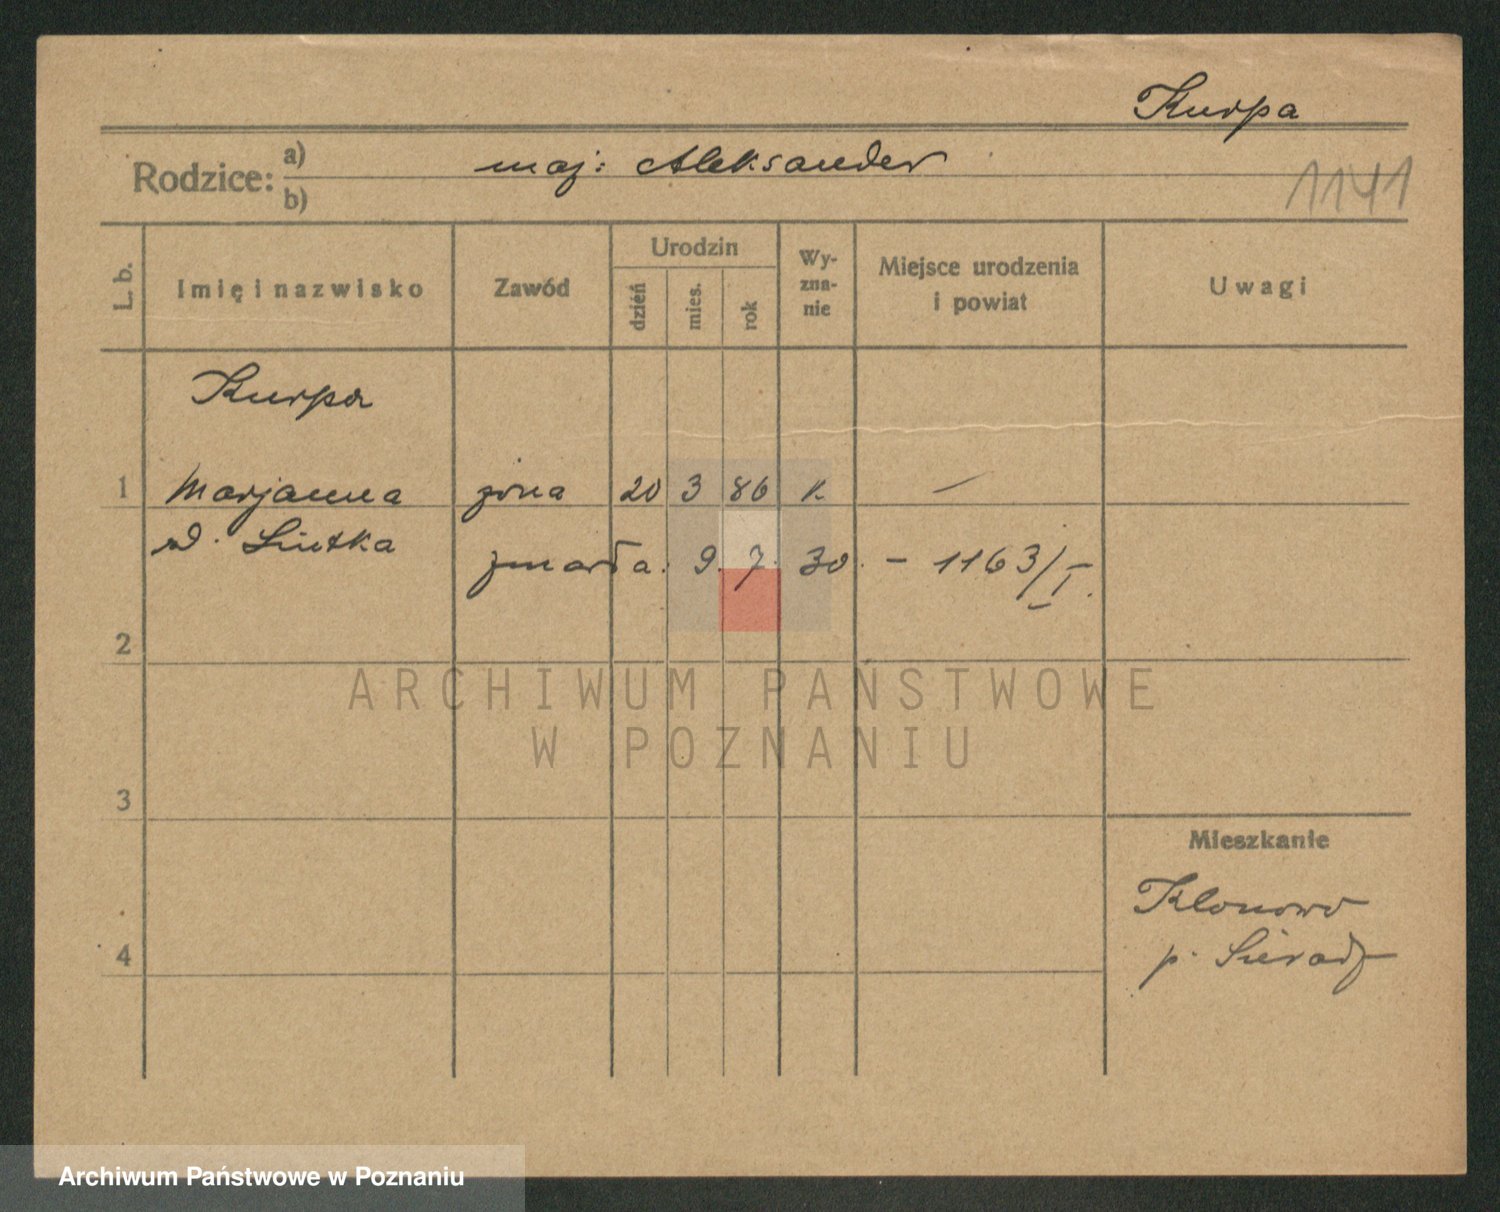 Kurpa
Rodzice: a) mąż: Aleksander
b)
1141
L. b. Imię i nazwisko Zawód Urodzin dzień mies. rok Wy-zna-nie Miejsce urodzenia i powiat Uwagi
Kurpa
1 Marjanna żona 20 3 86 K. —
d. Sintka
zmarła. 9. 7. 30. – 1163/I.
2
ARCHIWUM PAŃSTWOWE
W POZNANIU
3
Mieszkanie
Klonowo
4
p. Sieradz
Archiwum Państwowe w Poznaniu